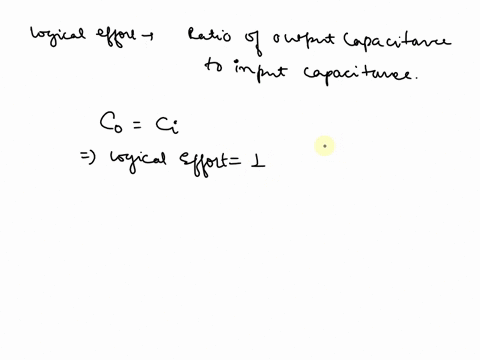 Logical effort → Ratio of output capacitance
to input capacitance.
Co = Ci
=) Logical Effort = 1